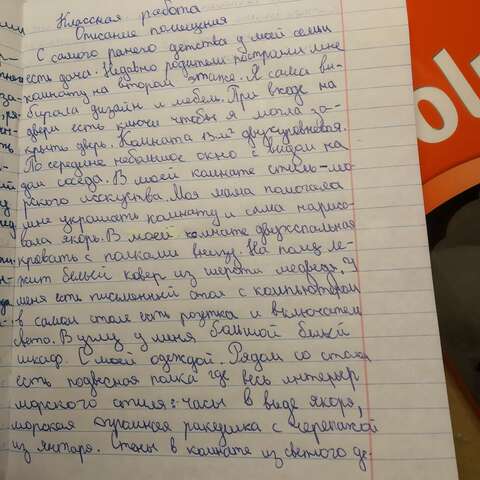 Классная работа
Описание помещения
С самого ранего детства у моей семьи
есть дача. Недавно родители построили мне
комнату на втором этаже. Я сама вы-
бирала дизайн и мебель. При входе на
двери есть ключи чтобы я могла за-
крыть дверь. Комната 13 м² двухуровневая.
По середине небольшое окно с видом на
дом соседа. В моей комнате стиль мо-
рского искусства. Моя мама помогала
мне украшать комнату и сама нарисо-
вала якорь. В моей комнате двухспальная
кровать с полками внизу. На полу ле-
жит белый ковер из шерсти медведя. У
меня есть письменный стол с компьютером
в самом столе есть розетка и включатель
света. В углу у меня большой белый
шкаф. С моей одеждой. Рядом со столом
есть подвесная полка где весь интерьер
морского стиля: часы в виде якоря,
морская огромная ракушка с черепахой
из янтаря. Стены в комнате из светлого де-